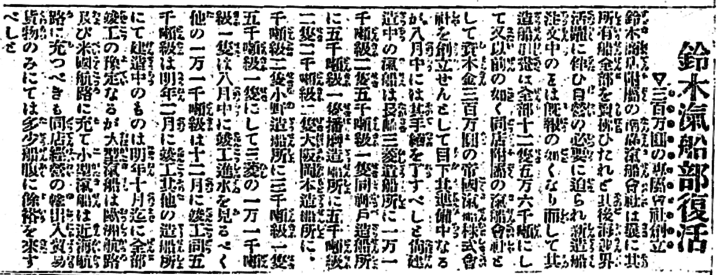 鈴木滊船部復活
▽三百万圓の専屬會社創立
鈴木商店附屬の南満滊船會社は曩に其
所有船全部を賣拂ひたれど其後海運界
活躍に伴ひ自營の必要に迫られ新造船
注文中のとは既報の如くなり而して其
造船噸數は全部十二隻五万六千噸にし
て又以前の如く同店附屬の滊船會社と
して資本金三百万圓の帝國滊船株式會
社を創立せんとして目下其準備中なる
が八月中には其手續を了すべしと尚建
造中の滊船は長崎三菱造船所に一万一
千噸級二隻五千噸級一隻同神戸造船所
に五千噸級一隻播磨造船所に五千噸級
二隻二千噸級一隻大阪岡本造船所に二
千噸級二隻小野造船所に三千噸級一隻
五千噸級一隻にして三菱の一万一千噸
級一隻は八月中に竣工進水を見るべく
他の一万一千噸級は十二月に竣工同五
千噸級は明年二月に竣工其他の造船所
にて建造中のものは明年十月迄に全部
竣工の豫定なるが大型滊船は歐洲航路
及び米國航路に充て小型滊船は近海航
路に充つべきも同店經營の輸出入貿易
貨物のみにては多少船腹に餘裕を來す
べしと